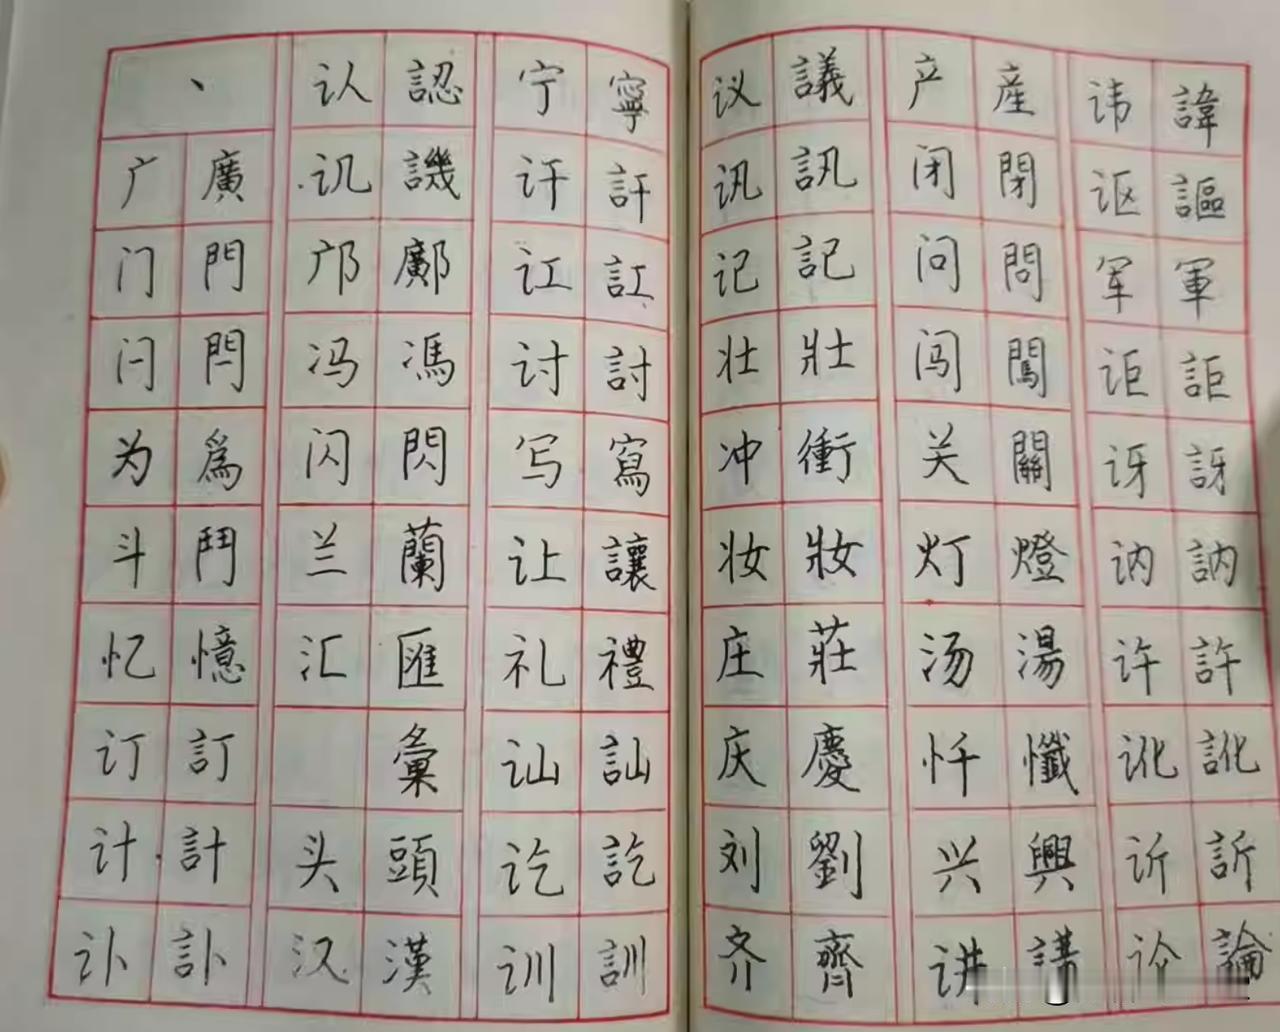 丶 认 認 宁 寧 议 議 产 產 讳 諱
广 廣 讥 譏 讦 訐 讯 訊 闭 閉 讴 謳
门 門 邝 鄺 讧 訌 记 記 问 問 军 軍
闩 閂 冯 馮 讨 討 壮 壯 闯 闖 讵 詎
为 爲 闪 閃 写 寫 冲 衝 关 關 讶 訝
斗 鬥 兰 蘭 让 讓 妆 妝 灯 燈 讷 訥
忆 憶 汇 匯 礼 禮 庄 莊 汤 湯 许 許
订 訂 彙 讪 訕 庆 慶 忏 懺 讹 訛
计 計 头 頭 讫 訖 刘 劉 兴 興 䜣 訢
讣 訃 汉 漢 训 訓 齐 齊 讲 講 论 論